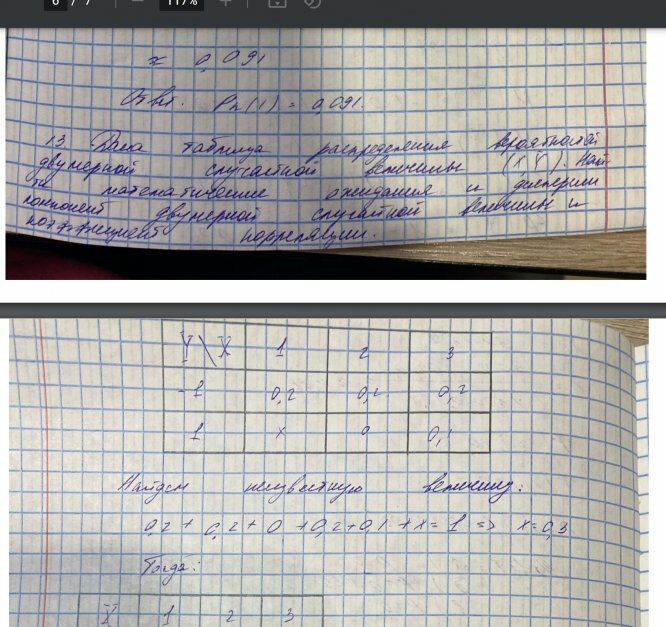 6 / 7 — 117% +
≈ 0,091
Ответ. Pn(1) = 0,091.
13 Дана таблица распределения вероятностей
двумерной случайной величины (X Y). Найт
ти математические ожидания и дисперсии
компонент двумерной случайной величины и
коэффициент корреляции.
Y\X 1 2 3
-1 0,2 0,2 0,2
1 x 0 0,1
Найдем неизвестную величину:
0,2 + 0,2 + 0 + 0,2 + 0,1 + x = 1 => x = 0,3
Тогда:
X 1 2 3